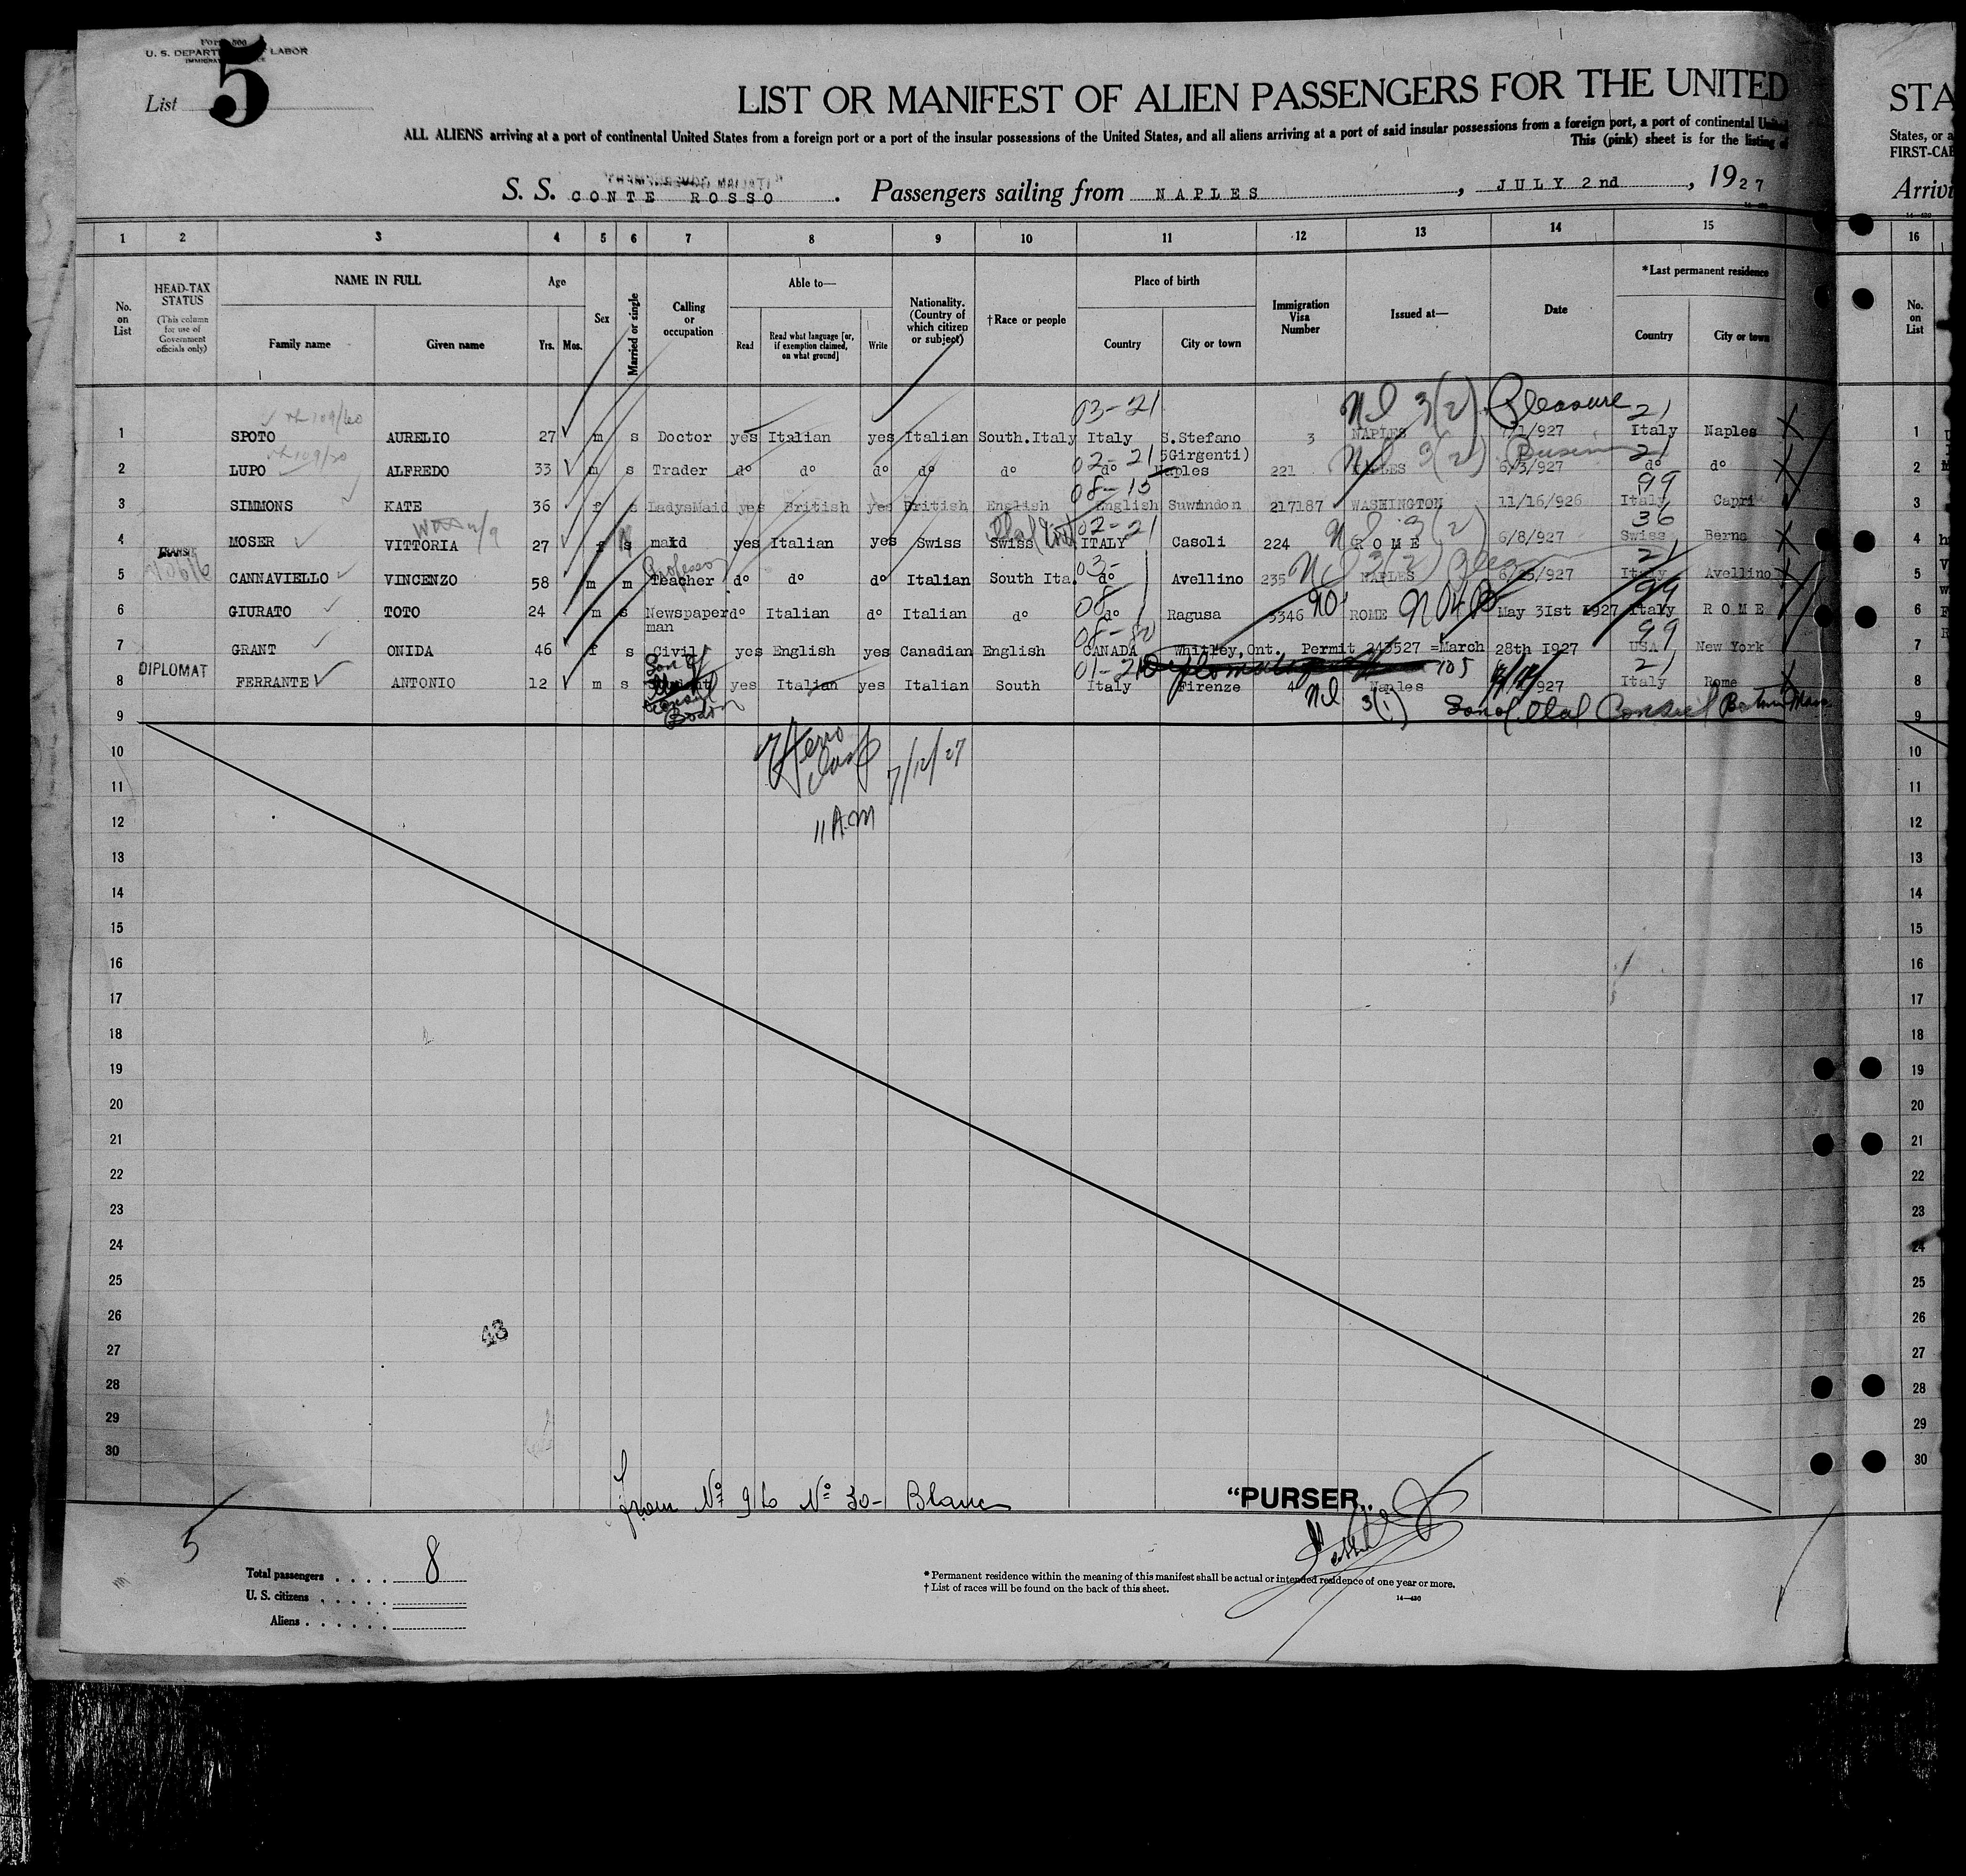 Form 500
U. S. DEPARTMENT OF LABOR
List 5
LIST OR MANIFEST OF ALIEN PASSENGERS FOR THE UNITED
STA
ALL ALIENS arriving at a port of continental United States from a foreign port or a port of the insular possessions of the United States, and all aliens arriving at a port of said insular possessions from a foreign port, a port of continental United
States, or a
This (pink) sheet is for the listing of
FIRST-CAB
S. S. CONTE ROSSO. Passengers sailing from NAPLES, JULY 2nd, 1927
Arrivi
1 2 3 4 5 6 7 8 9 10 11 12 13 14 15 16
No. on List
HEAD-TAX STATUS (This column for use of Government officials only)
NAME IN FULL
Family name Given name
Age
Yrs. Mos.
Sex
Married or single
Calling or occupation
Able to—
Read Read what language [or, if exemption claimed, on what ground] Write
Nationality. (Country of which citizen or subject)
†Race or people
Place of birth
Country City or town
Immigration Visa Number
Issued at—
Date
*Last permanent residence
Country City or town
No. on List
03-21 3(2) Pleasure 21
1 SPOTO AURELIO 27 m s Doctor yes Italian yes Italian South.Italy Italy S.Stefano 3 NAPLES 7/1/927 Italy Naples 1
02-21 5Girgenti) 3(2) 21
2 LUPO ALFREDO 33 m s Trader do do do do do do Naples 221 NAPLES 6/3/927 do do 2
08-15 99
3 SIMMONS KATE 36 f s LadysMaid yes British yes British English English Suwindon 217187 WASHINGTON 11/16/926 Italy Capri 3
02-21 3(2) 36
4 MOSER VITTORIA 27 f s maid yes Italian yes Swiss Swiss ITALY Casoli 224 ROME 6/8/927 Swiss Berna 4
TRANSIT Professor 03- 3(2) 21
5 CANNAVIELLO VINCENZO 58 m m Teacher do do do Italian South Ita. do Avellino 235 NAPLES 6/25/927 Italy Avellino 5
08 99
6 GIURATO TOTO 24 m s Newspaper man do Italian do Italian do do Ragusa 3346 ROME May 3Ist 1927 Italy ROME 6
08-80 99
7 GRANT ONIDA 46 f s Civil yes English yes Canadian English CANADA Whitley,Ont. Permit 243527 =March 28th I927 USA New York 7
DIPLOMAT Son of 01-21 105 21
8 FERRANTE ANTONIO 12 m s Student yes Italian yes Italian South Italy Firenze 4 Naples 927 Italy Rome 8
Consul Boston 3(1) Son of Ital Consul Boston Mass
9 9
10 7/12/27 10
11 11
12 11 AM 12
13 13
14 14
15 15
16 16
17 17
18 18
19 19
20 20
21 21
22 22
23 23
24 24
25 25
26 26
43
27 27
28 28
29 29
30 30
from No 9 to No 30- Blanc
"PURSER„
5
Total passengers . . . . 8
U. S. citizens . . . . . .
Aliens . . . . . .
* Permanent residence within the meaning of this manifest shall be actual or intended residence of one year or more.
† List of races will be found on the back of this sheet.
14—430